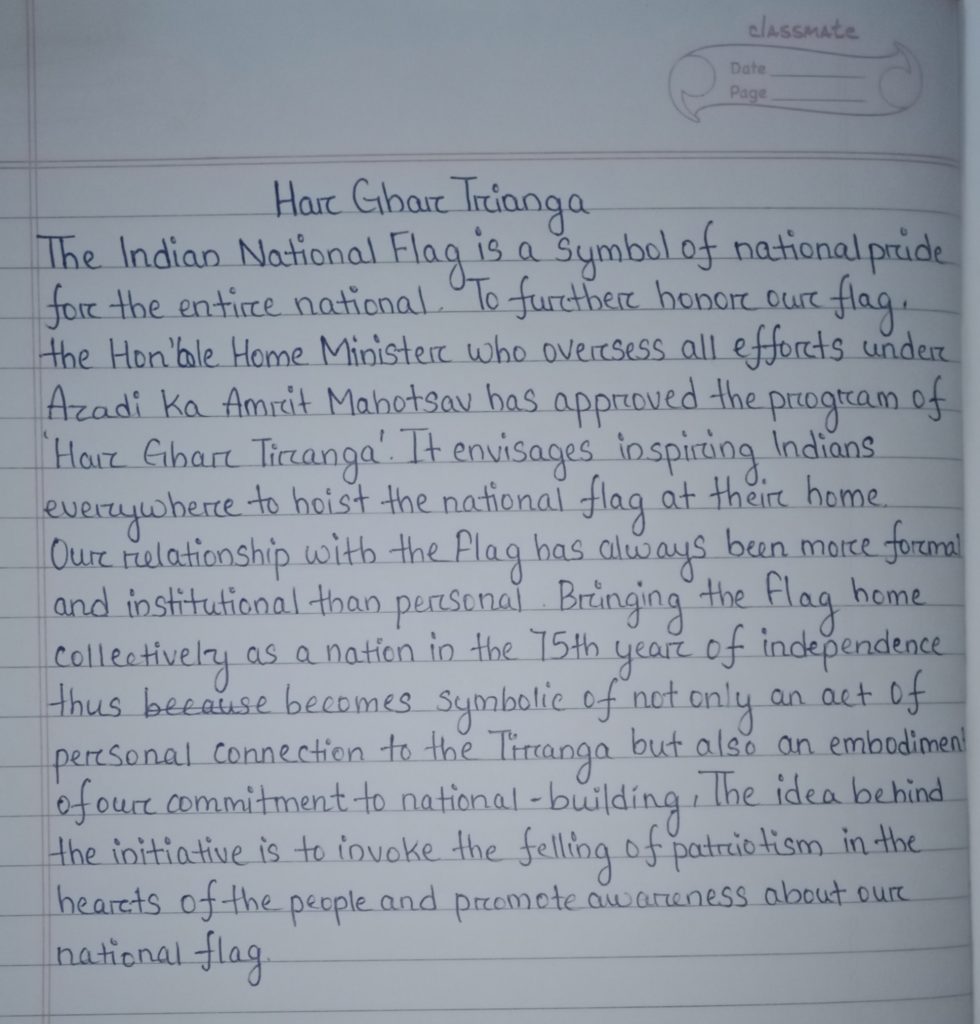 classmate
Date
Page
Har Ghar Trianga
The Indian National Flag is a symbol of national pride
for the entire national. To further honor our flag,
the Hon'ble Home Minister who oversess all efforts under
Azadi Ka Amrit Mahotsav has approved the program of
'Har Ghar Tiranga'. It envisages inspiring Indians
everywhere to hoist the national flag at their home.
Our relationship with the flag has always been more formal
and institutional than personal. Bringing the flag home
collectively as a nation in the 75th year of independence
thus because becomes symbolic of not only an act of
personal connection to the Tirranga but also an embodiment
of our commitment to national-building, The idea behind
the initiative is to invoke the felling of patriotism in the
hearts of the people and promote awareness about our
national flag.